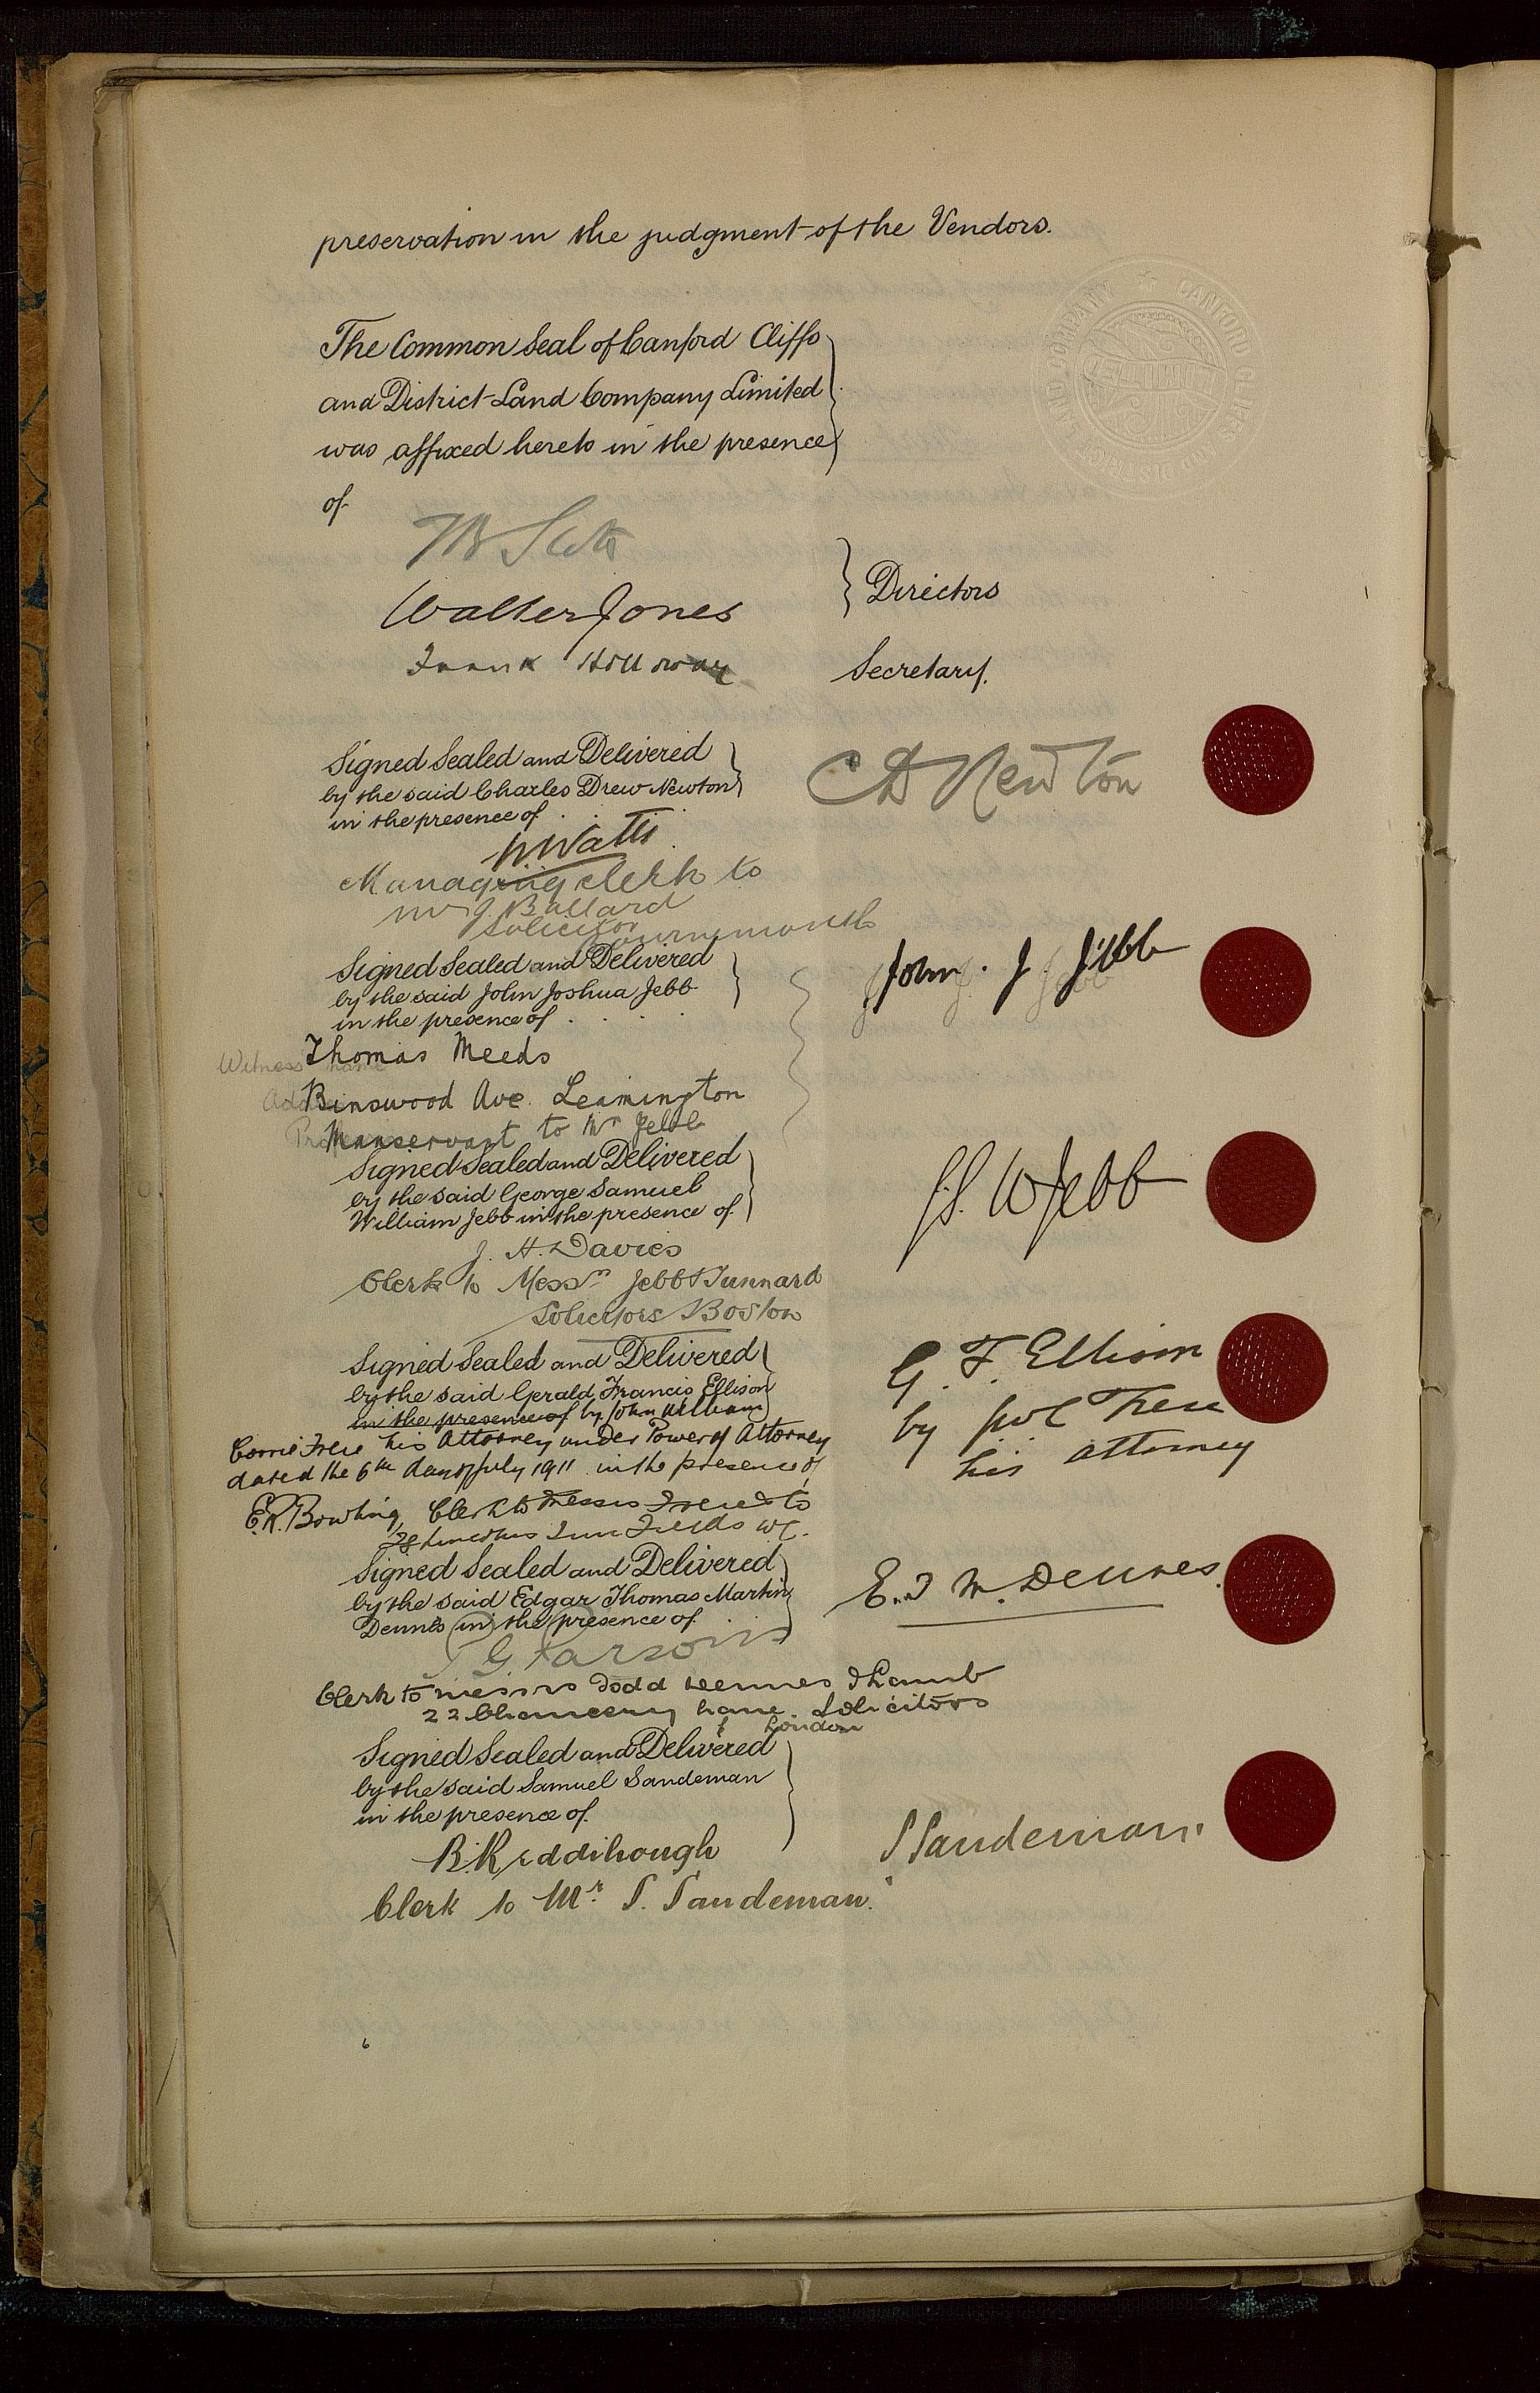 preservation in the judgment of the Vendors.
The Common Seal of Canford Cliffs
and District Land Company Limited
was affixed hereto in the presence
of
Walter Jones
Directors
Frank Holloway
Secretary.
Signed Sealed and Delivered
by the said Charles Drew Newton
in the presence of
C D Newton
W Watts
Managing clerk to
Mr J. Ballard
Solicitor
Bournemouth
Signed Sealed and Delivered
by the said John Joshua Jebb
in the presence of
John. J. Jebb
Witness name Thomas Meeds
Binswood Ave. Leamington
Manservant to Mr Jebb
Signed Sealed and Delivered
by the said George Samuel
William Jebb in the presence of
G.S. W Jebb
J. H. Davies
Clerk to Messrs Jebb & Tunnard
Solicitors Boston
Signed Sealed and Delivered
by the said Gerald Francis Ellison
in the presence of by John William
Corrie Frere his Attorney under Power of Attorney
dated the 6th day of July 1911 in the presence of
G. F. Ellison
by Frere
his attorney
E.R. Bowling, Clerk to Messrs Frere & Co
28 Lincolns Inn Fields WC.
Signed Sealed and Delivered
by the said Edgar Thomas Martin
Dennes in the presence of
E. T M. Dennes.
G. Parsons
Clerk to Messrs Dodd Dennes & Lamb
22 Chancery Lane. Solicitors
London
Signed Sealed and Delivered
by the said Samuel Sandeman
in the presence of
S Sandeman
R. Reddihough
Clerk to Mr. S. Sandeman.